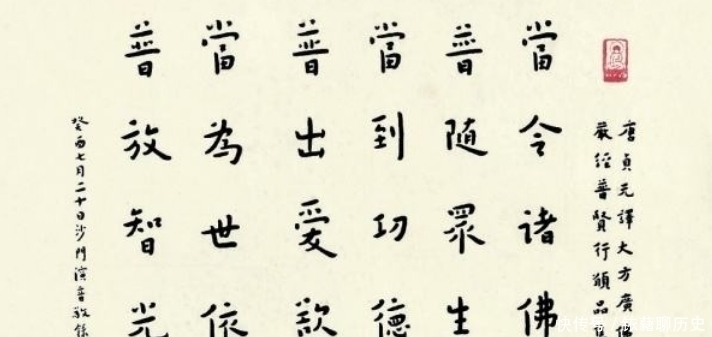 唐貞元譯大方廣佛
嚴經普賢行願品
當令諸佛
普随眾生
當到功德
普出愛欲
當為世依
普放智光
癸酉七月二十日沙門演音敬
快传号
聊历史